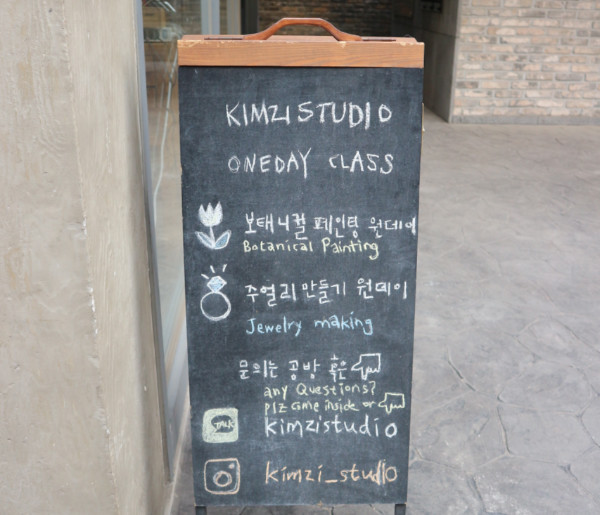 KIMZI STUDIO
ONEDAY CLASS
보태니컬 페인팅 원데이
Botanical Painting
주얼리 만들기 원데이
Jewelry making
문의는 공방 혹은
any Questions?
plz come inside or
TALK
kimzistudio
kimzi_studio